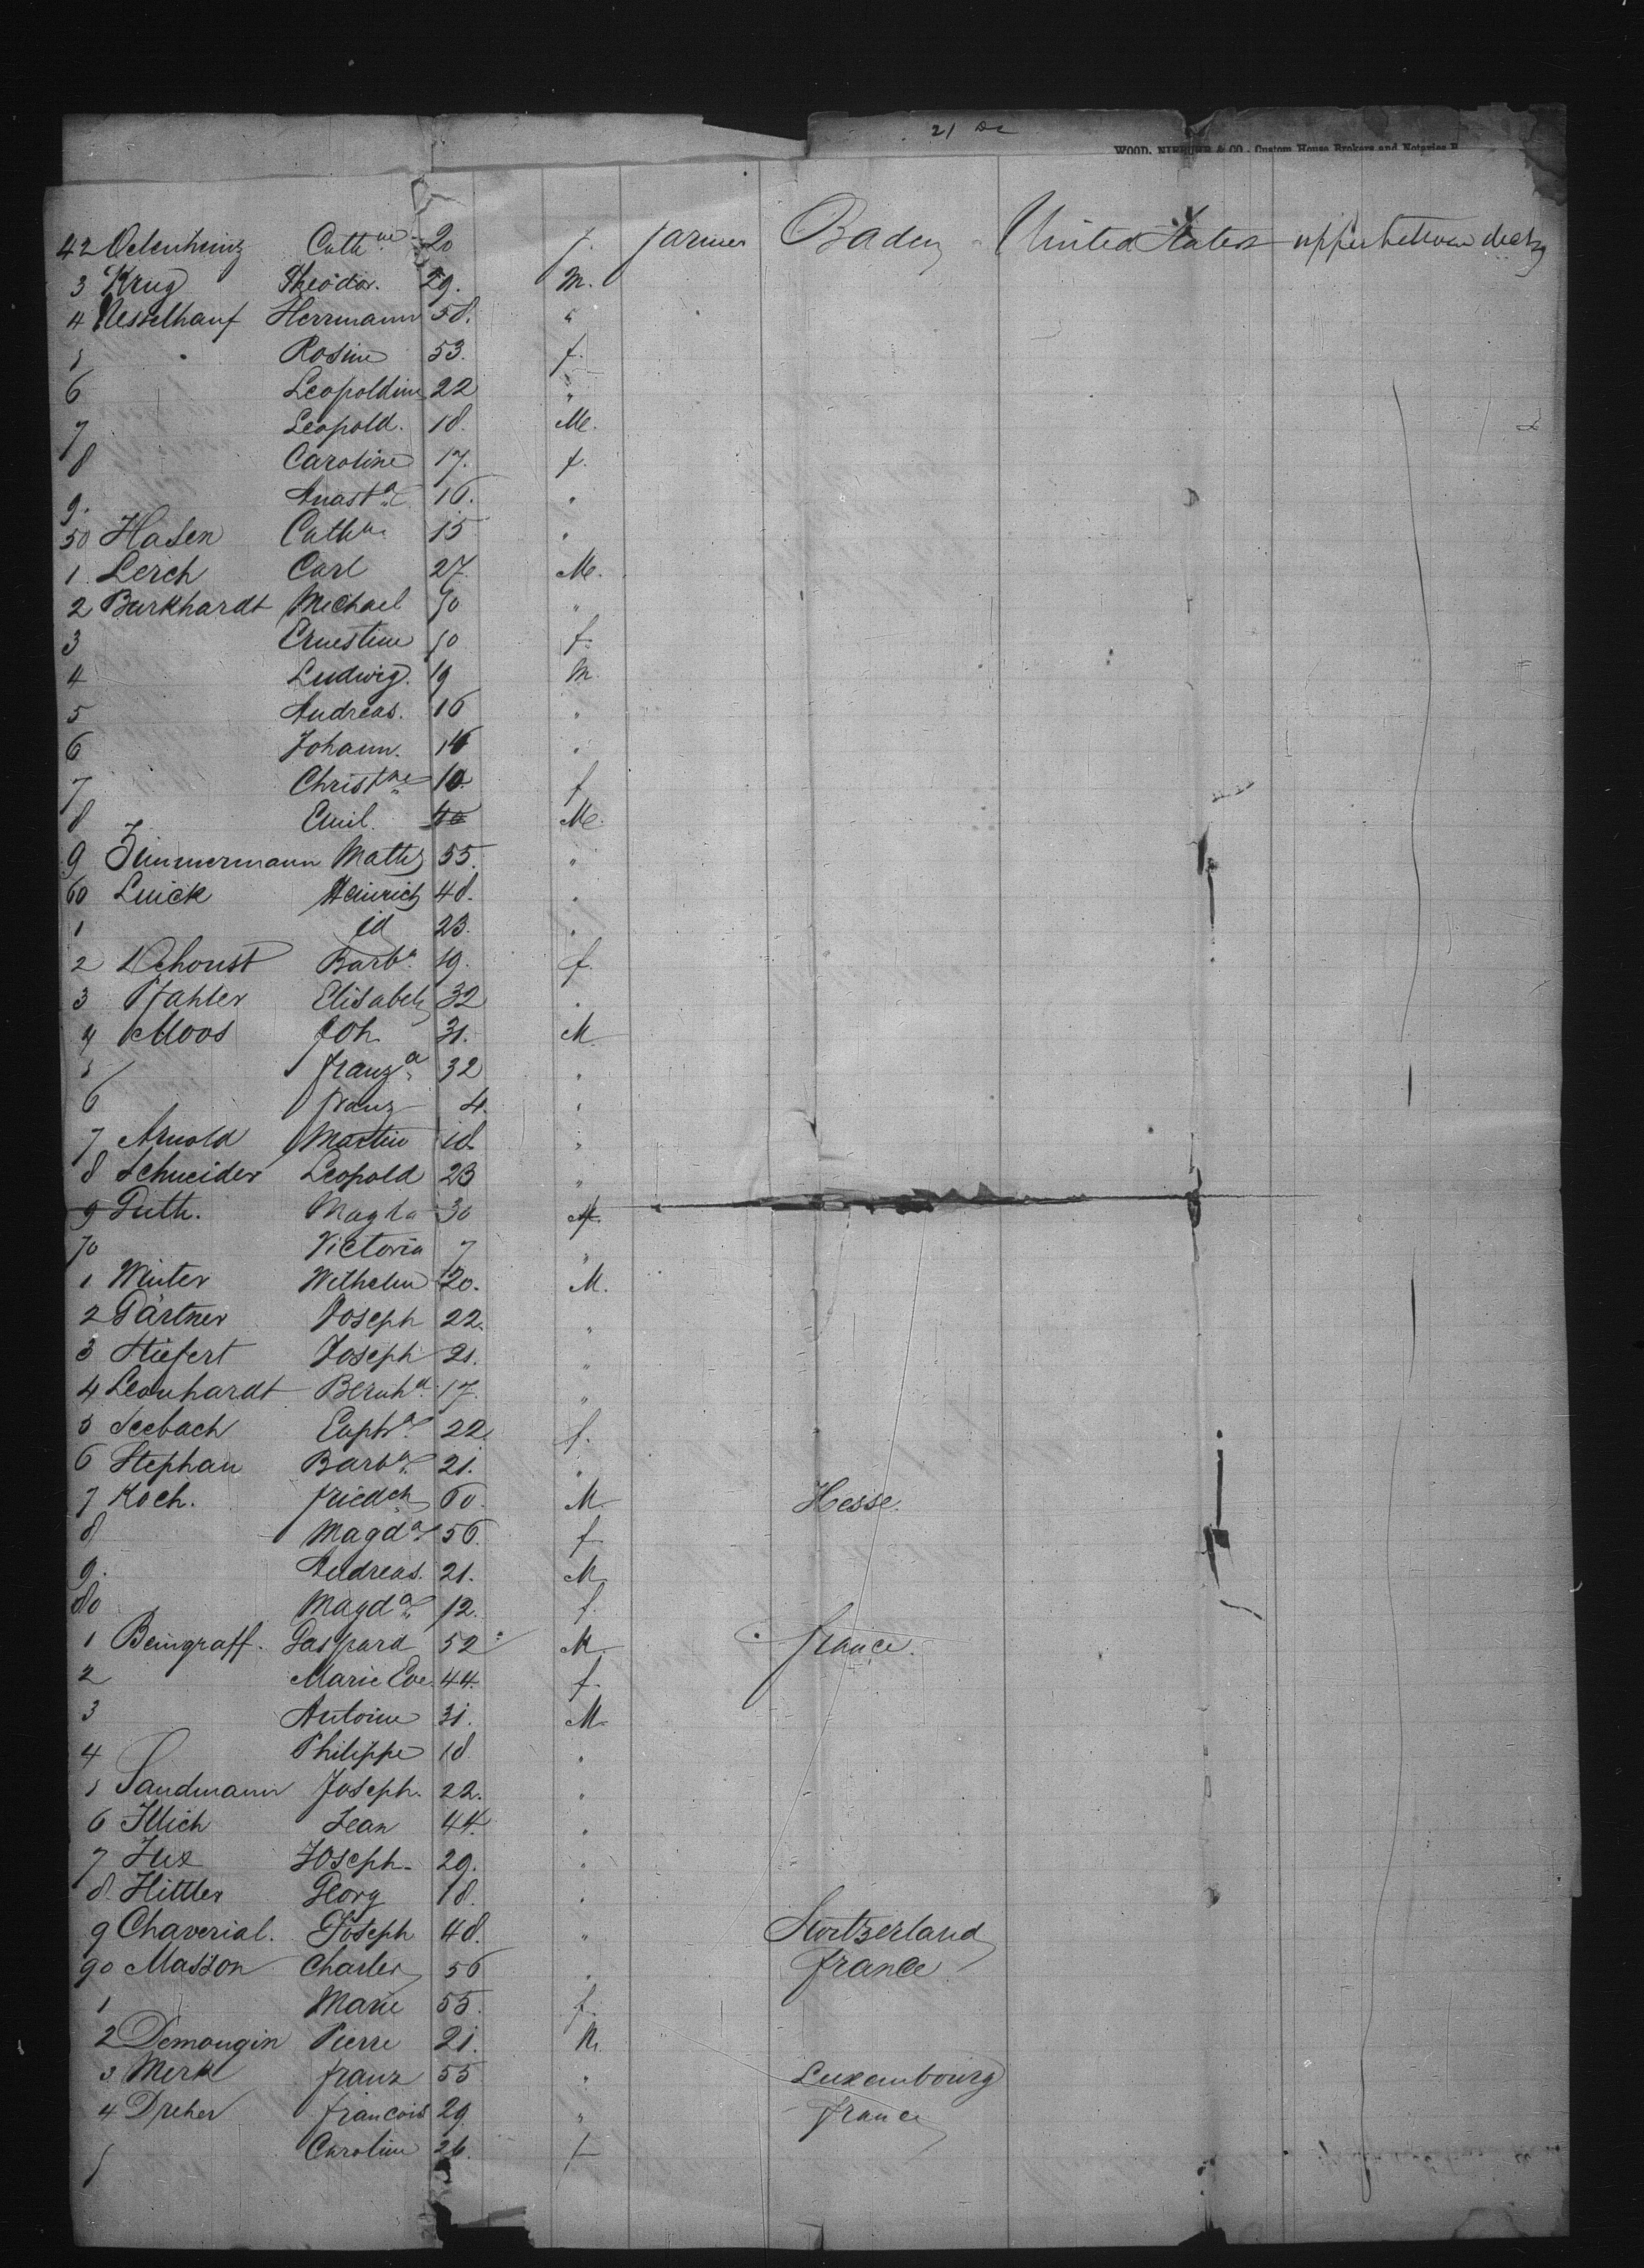 21 De
WOOD, NIEBUHR & CO., Custom House Brokers and Notaries P
42 Oelenheinz Cath.ne 20 f. farmer Baden United States upper between decks
3 Krug Theodor. 29. M.
4 Nesselhauf Herrmann 58. "
5 Rosine 53. f.
6 Leopoldine 22 "
7 Leopold. 18. M.
8 Caroline 17. f.
9. Anast.a 16. "
50 Hasen Cath.ne 15 "
1. Lerch Carl 27. M.
2 Burkhardt Michael 50 "
3 Ernestine 50 f.
4 Ludwig. 19 M.
5 Andreas. 16 "
6 Johann. 14 "
7 Christ.ne 10. f
8 Emil. M.
9 Zimmermann Maths 55. "
60 Luick Heinrich 48. "
1 id 23. "
2 Barb.a 19. f.
3 Pfahler Elisabeth 32 "
4 Moos Joh 31. M.
5 Franz.a 32 "
6 Franz 4. "
7 Arnold Martin 18. "
8 Schneider Leopold 23 "
9 Guth. Magda 30 f.
70 Victoria 7 "
1 Winter Wilhelm 20. M.
2 Gärtner Joseph 22. "
3 Stiefert Joseph 21. "
4 Leonhardt Bernh.d 17. "
5 Seebach Euph.a 22. f.
6 Stephan Barb.a 21. "
7 Koch. Friedch 60. M. Hesse.
8 Magd.a 56. f.
9. Andreas. 21. M.
80 Magd.a 12. f.
1 Beingraff. Gaspard 52 M. France.
2 Marie Eve 44. f.
3 Antoine 31. M.
4 Philippe 18. "
5 Sandmann Joseph. 22. "
6 Illich Jean 44. "
7 Jux Joseph. 29. "
8. Hittler Georg 18. "
9 Chaverial. Joseph 48. " Switzerland
90 Masson Charles 56 " France
1 Marie 55. f.
2 Demougin Pierre 21. M.
3 Merk Franz 55 " Luxembourg
4 Dreher Francois 29. " France
5 Caroline 26. f